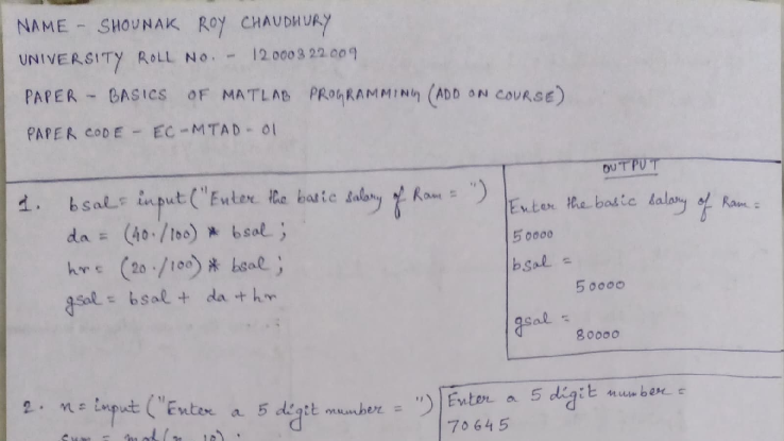 NAME - SHOUNAK ROY CHAUDHURY
UNIVERSITY ROLL NO. - 12000322009
PAPER - BASICS OF MATLAB PROGRAMMING (ADD ON COURSE)
PAPER CODE - EC-MTAD-01
1. bsal = input("Enter the basic salary of Ram = ")
da = (40./100) * bsal;
hr = (20./100) * bsal;
gsal = bsal + da + hr
OUTPUT
Enter the basic salary of Ram =
50000
bsal =
50000
gsal =
80000
2. n = input("Enter a 5 digit number = ")
sum = mod(n, 10);
Enter a 5 digit number =
70645